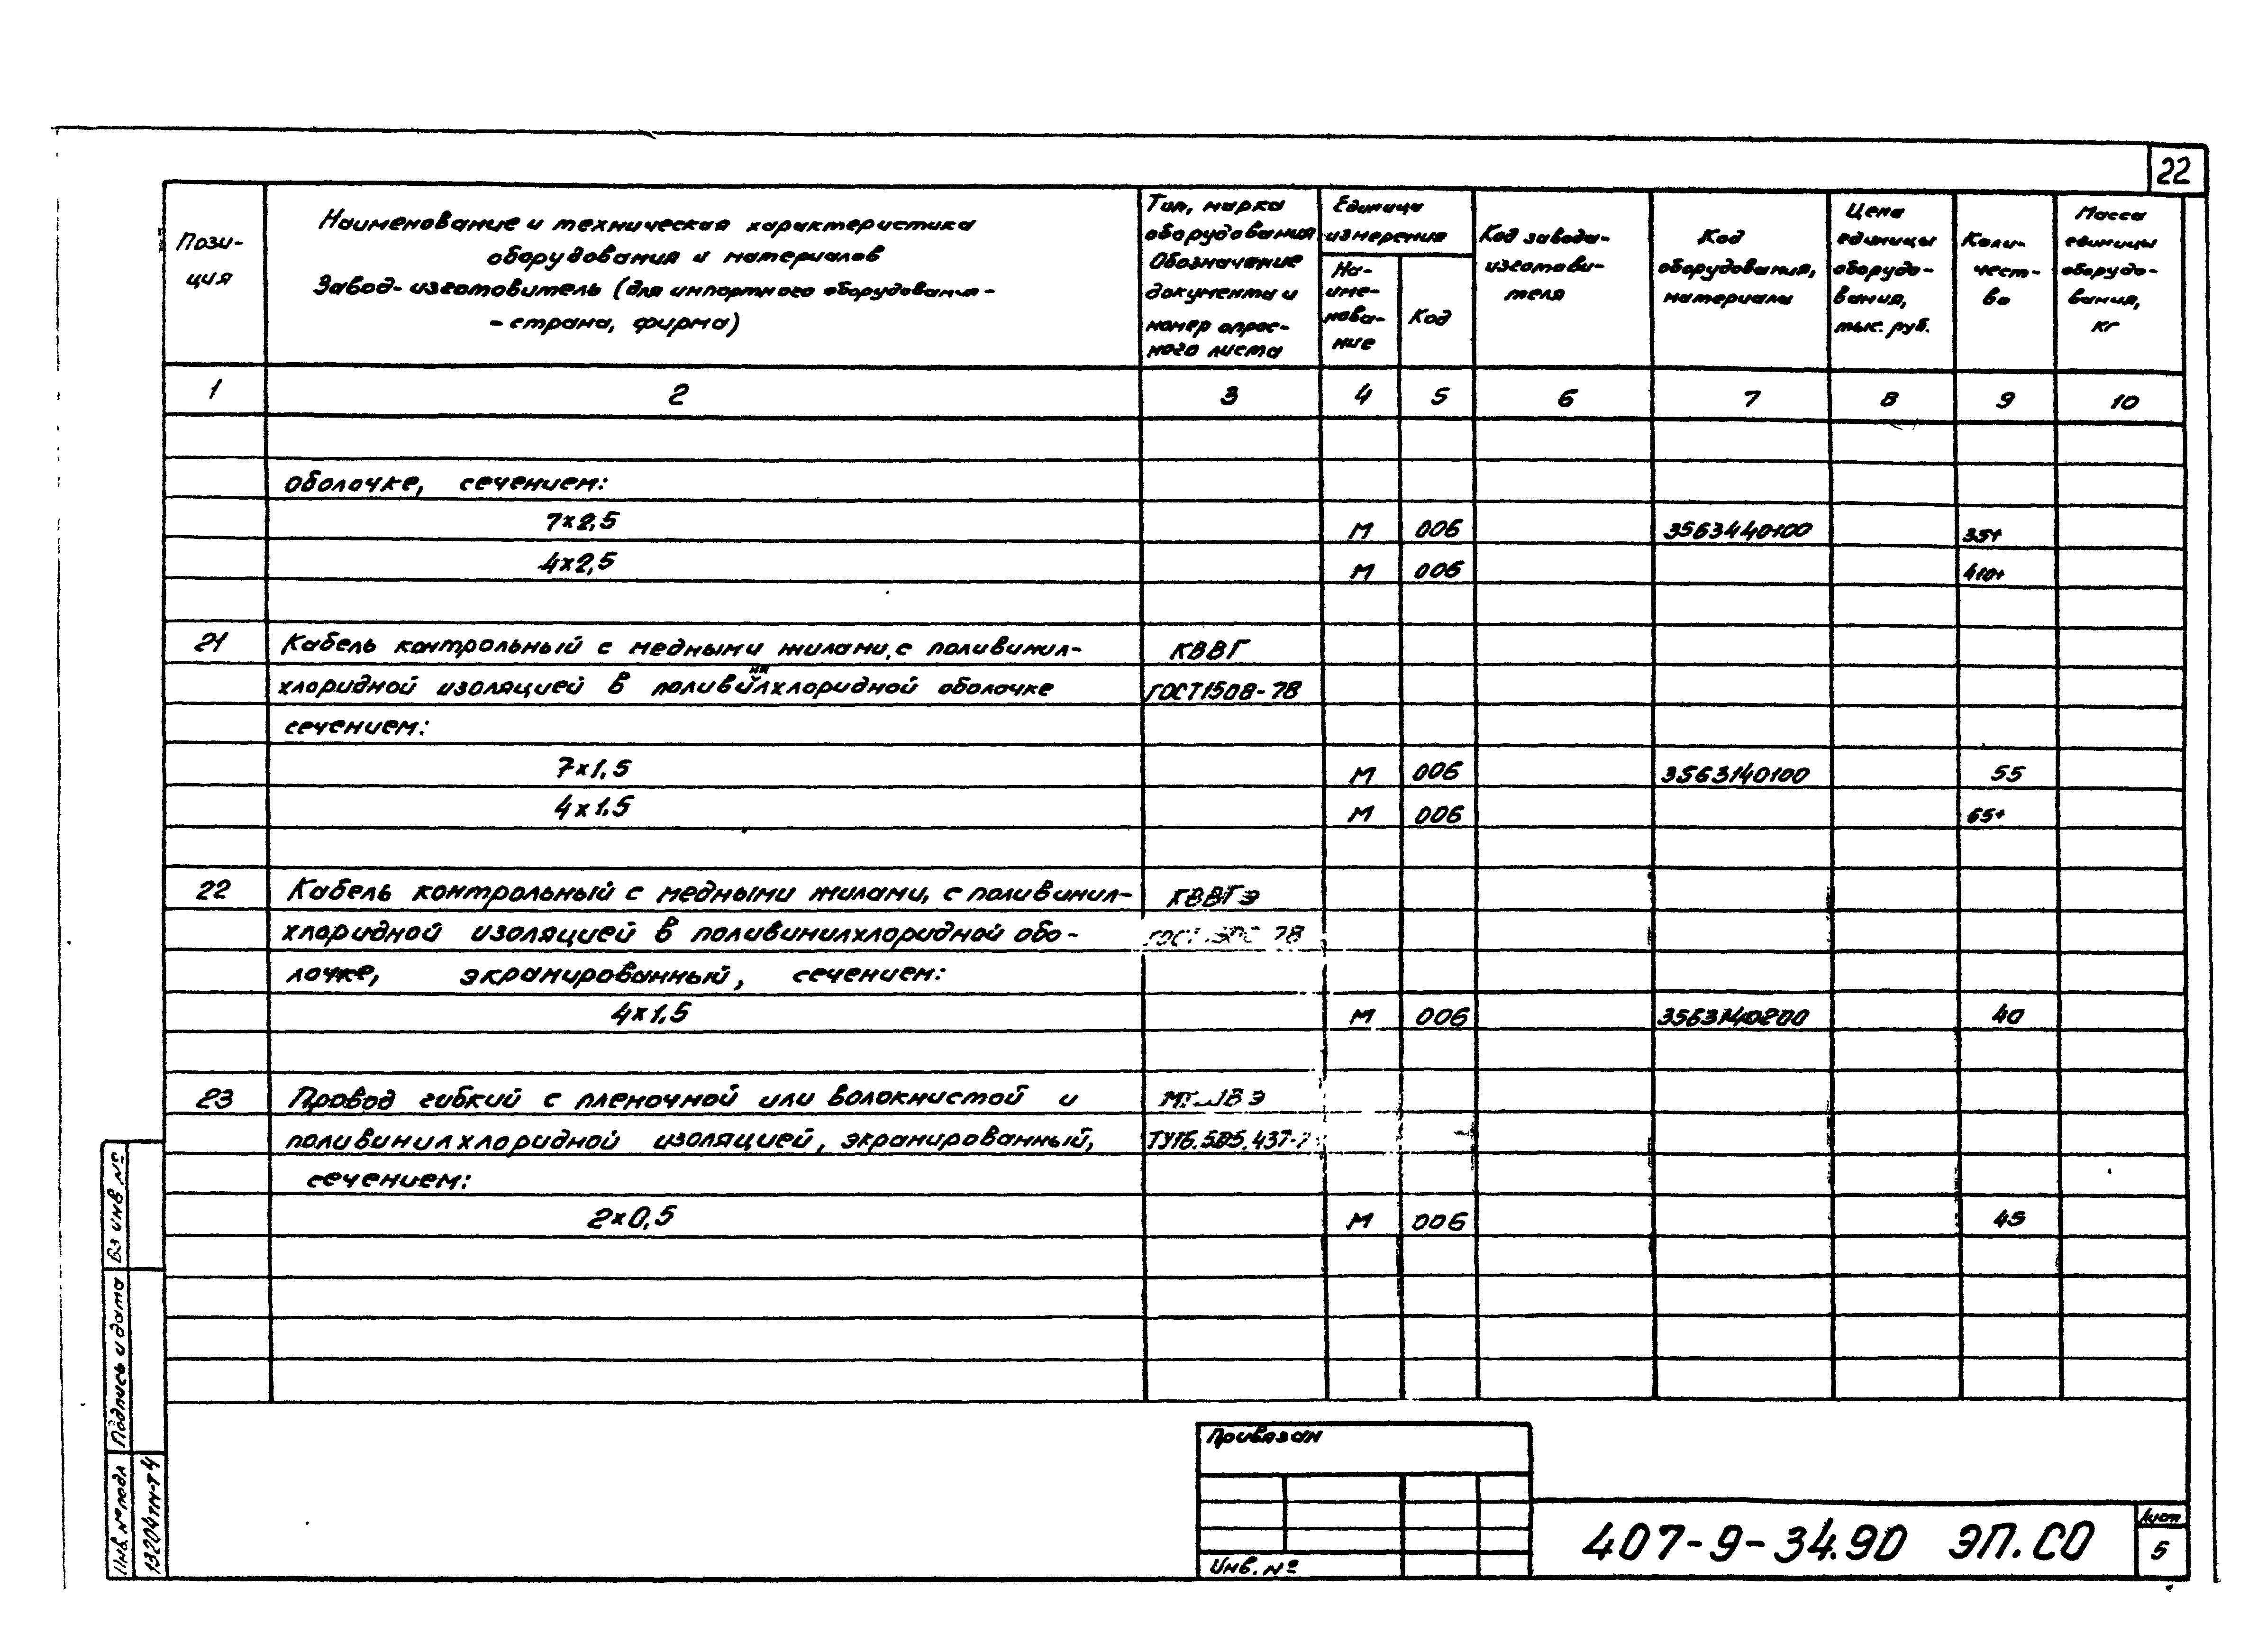 22
Пози-
ция
Наименование и техническая характеристика
оборудования и материалов
Завод-изготовитель (для импортного оборудования-
- страна, фирма)
Тип, марка
оборудования
Обозначение
документа и
номер опрос-
ного листа
Единица
измерения
На-
име-
нова-
ние
Код
Код завода-
изготови-
теля
Код
оборудования,
материала
Цена
единицы
оборудо-
вания,
тыс. руб.
Коли-
чест-
во
Масса
единицы
оборудо-
вания,
кг
1 2 3 4 5 6 7 8 9 10
оболочке, сечением:
7×2,5 м 006 3563440100 35+
4×2,5 м 006 410+
21 Кабель контрольный с медными жилами, с поливинил- КВВГ
хлоридной изоляцией в поливинилхлоридной оболочке ГОСТ1508-78
сечением:
7×1,5 м 006 3563140100 55
4×1.5 м 006 65+
22 Кабель контрольный с медными жилами, с поливинил- КВВГэ
хлоридной изоляцией в поливинилхлоридной обо- 78
лочке, экранированный, сечением:
4×1,5 м 006 3563140200 40
23 Провод гибкий с пленочной или волокнистой и
поливинилхлоридной изоляцией, экранированный, ТУ16.505.437-7
сечением:
2×0,5 м 006 45
Вз инв №
Подпись и дата
Инв. № подл
13204тм-т4
Привязан
Инв. №
407-9-34.90 ЭП.СО
Лист
5